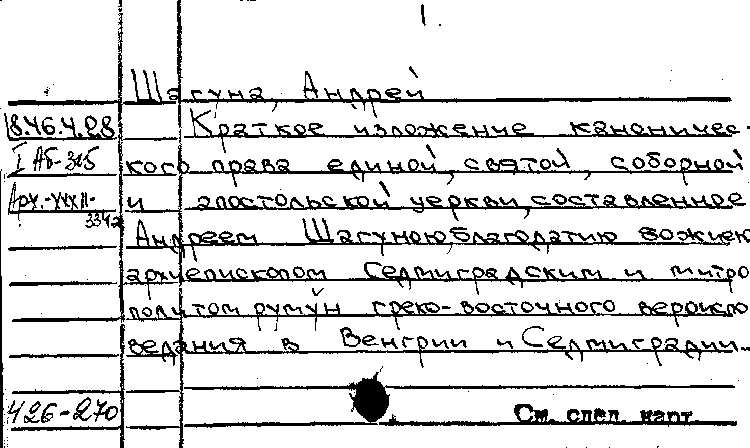 1.
Шагуна, Андрей
18.46.4.28
Краткое изложение каноничес-
I Аб-315
кого права единой, святой, соборной
и апостольской церкви, составленное
334а
Андреем Шагуною, благодатию божиею
архиепископом Седмиградским и митро
политом румын греко-восточного вероиспо
ведания в Венгрии и Седмиградии.
426-270
См. след. карт.